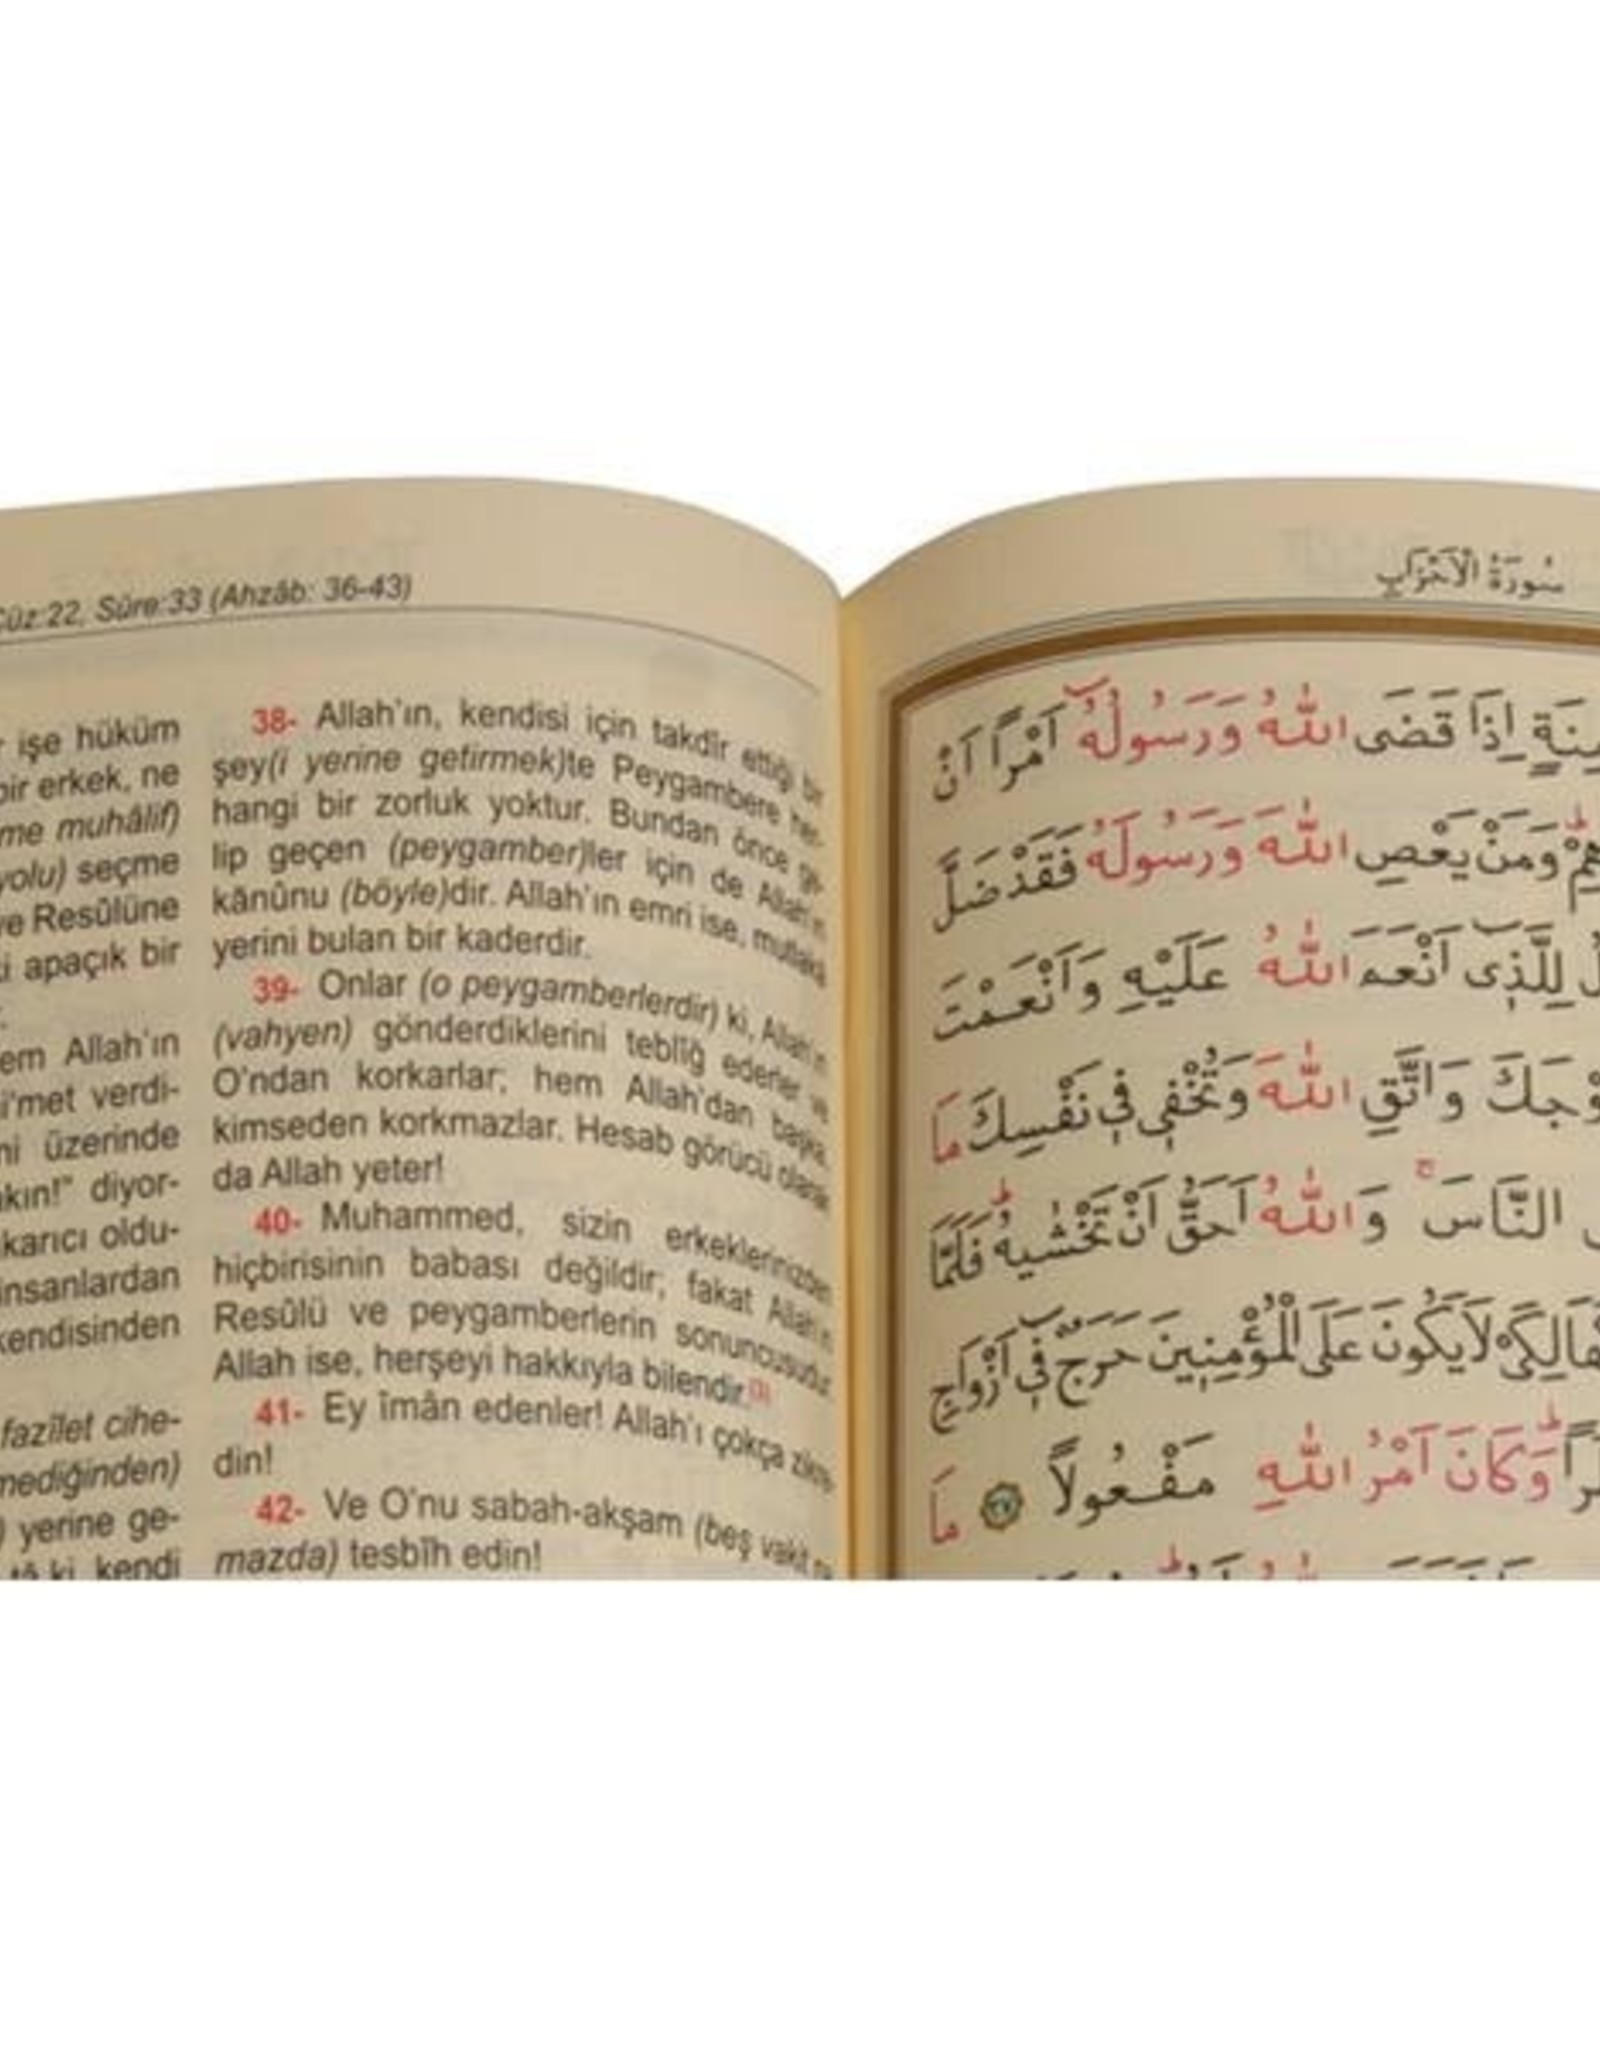 Cüz:22, Sûre:33 (Ahzâb: 36-43)
işe hüküm
bir erkek, ne
me muhâlif)
yolu) seçme
ve Resûlüne
apaçık bir
em Allah'ın
i'met verdi-
ni üzerinde
akın!" diyor-
karıcı oldu-
insanlardan
kendisinden
fazîlet cihe-
mediğinden)
) yerine ge-
tâ ki, kendi
38- Allah'ın, kendisi için takdîr ettiği bir
şey(i yerine getirmek)te Peygambere her-
hangi bir zorluk yoktur. Bundan önce ge-
lip geçen (peygamber)ler için de Allah'ın
kânûnu (böyle)dir. Allah'ın emri ise, mutlakâ
yerini bulan bir kaderdir.
39- Onlar (o peygamberlerdir) ki, Allah'ın
(vahyen) gönderdiklerini teblîğ ederler ve
O'ndan korkarlar; hem Allah'dan başka,
kimseden korkmazlar. Hesab görücü olarak
da Allah yeter!
40- Muhammed, sizin erkeklerinizden
hiçbirisinin babası değildir; fakat Allah'ın
Resûlü ve peygamberlerin sonuncusudur.
Allah ise, herşeyi hakkıyla bilendir.
41- Ey îmân edenler! Allah'ı çokça zikre-
din!
42- Ve O'nu sabah-akşam (beş vakit na-
mazda) tesbîh edin!
سُورَةُ الْاَحْزَابِ
اِذَا قَضَى اللّٰهُ وَرَسُولُهُٓ اَمْراً اَنْ
وَمَنْ يَعْصِ اللّٰهَ وَرَسُولَهُ فَقَدْ ضَلَّ
لِلَّذ۪ٓي اَنْعَمَ اللّٰهُ عَلَيْهِ وَاَنْعَمْتَ
وَاتَّقِ اللّٰهَ وَتُخْف۪ي ف۪ي نَفْسِكَ مَا
النَّاسَۚ وَاللّٰهُ اَحَقُّ اَنْ تَخْشٰيهُۜ فَلَمَّا
لِكَيْ لَا يَكُونَ عَلَى الْمُؤْمِن۪ينَ حَرَجٌ ف۪ٓي اَزْوَاجِ
وَكَانَ اَمْرُ اللّٰهِ مَفْعُولاً ﴿٣٧﴾ مَا